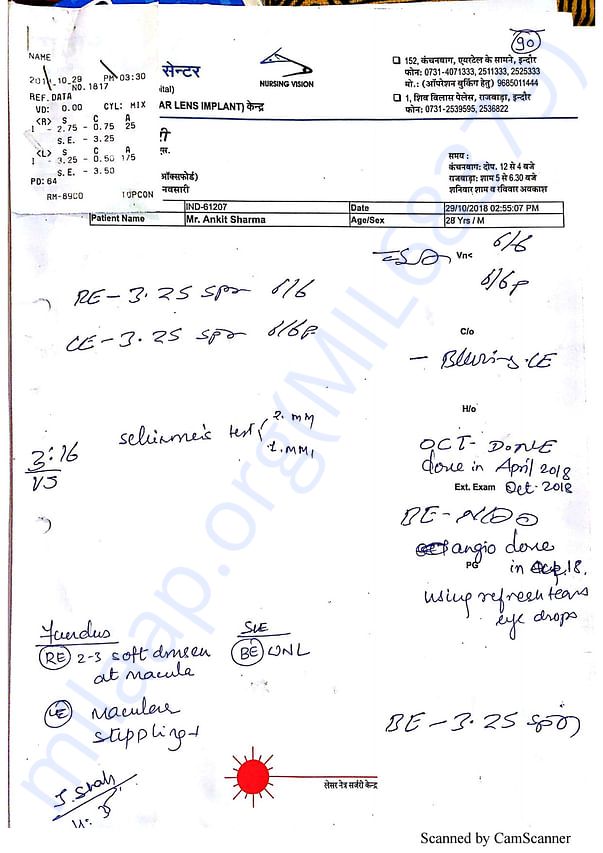 90
NAME
2018.10.29 PM 03:30
NO.1817
REF.DATA
VD: 0.00 CYL: MIX
<R> S C A
1 - 2.75 - 0.75 25
S.E. - 3.25
<L> S C A
1 - 3.25 - 0.50 175
S.E. - 3.50
PD: 64
RM-8900 TOPCON
सेन्टर
ital)
AR LENS IMPLANT) केन्द्र
NURSING VISION
152, कंचनबाग, एयरटेल के सामने, इन्दौर
फोन: 0731-4071333, 2511333, 2525333
मो.: (ऑपरेशन बुकिंग हेतु) 9685011444
1, शिव विलास पेलेस, राजवाड़ा, इन्दौर
फोन: 0731-2539595, 2536822
ी
स.
ऑक्सफोर्ड)
नवसारी
समय :
कंचनबाग: दोप. 12 से 4 बजे
राजवाड़ा: शाम 5 से 6.30 बजे
शनिवार शाम व रविवार अवकाश
IND-61207 Date 29/10/2018 02:55:07 PM
Patient Name Mr. Ankit Sharma Age/Sex 28 Yrs / M
Vn< 6/6
6/6p
RE - 3.25 spr 6/6
LE - 3.25 spr 6/6p
C/o
- Bluring LE
H/o
Schirmer's test 2. mm
2. mm
3:16
VS
OCT- DONE
done in April 2018
Ext. Exam Oct-2018
BE -
angio done
PG in 18.
using refresh tears
eye drops
Fundus
RE 2-3 soft drusen
at macula
LE Macular
stippling+
SLE
BE WNL
BE - 3.25 spr
J. Shah
लेसर नेत्र सर्जरी केन्द्र
milaap.org(MIL68379)
Scanned by CamScanner